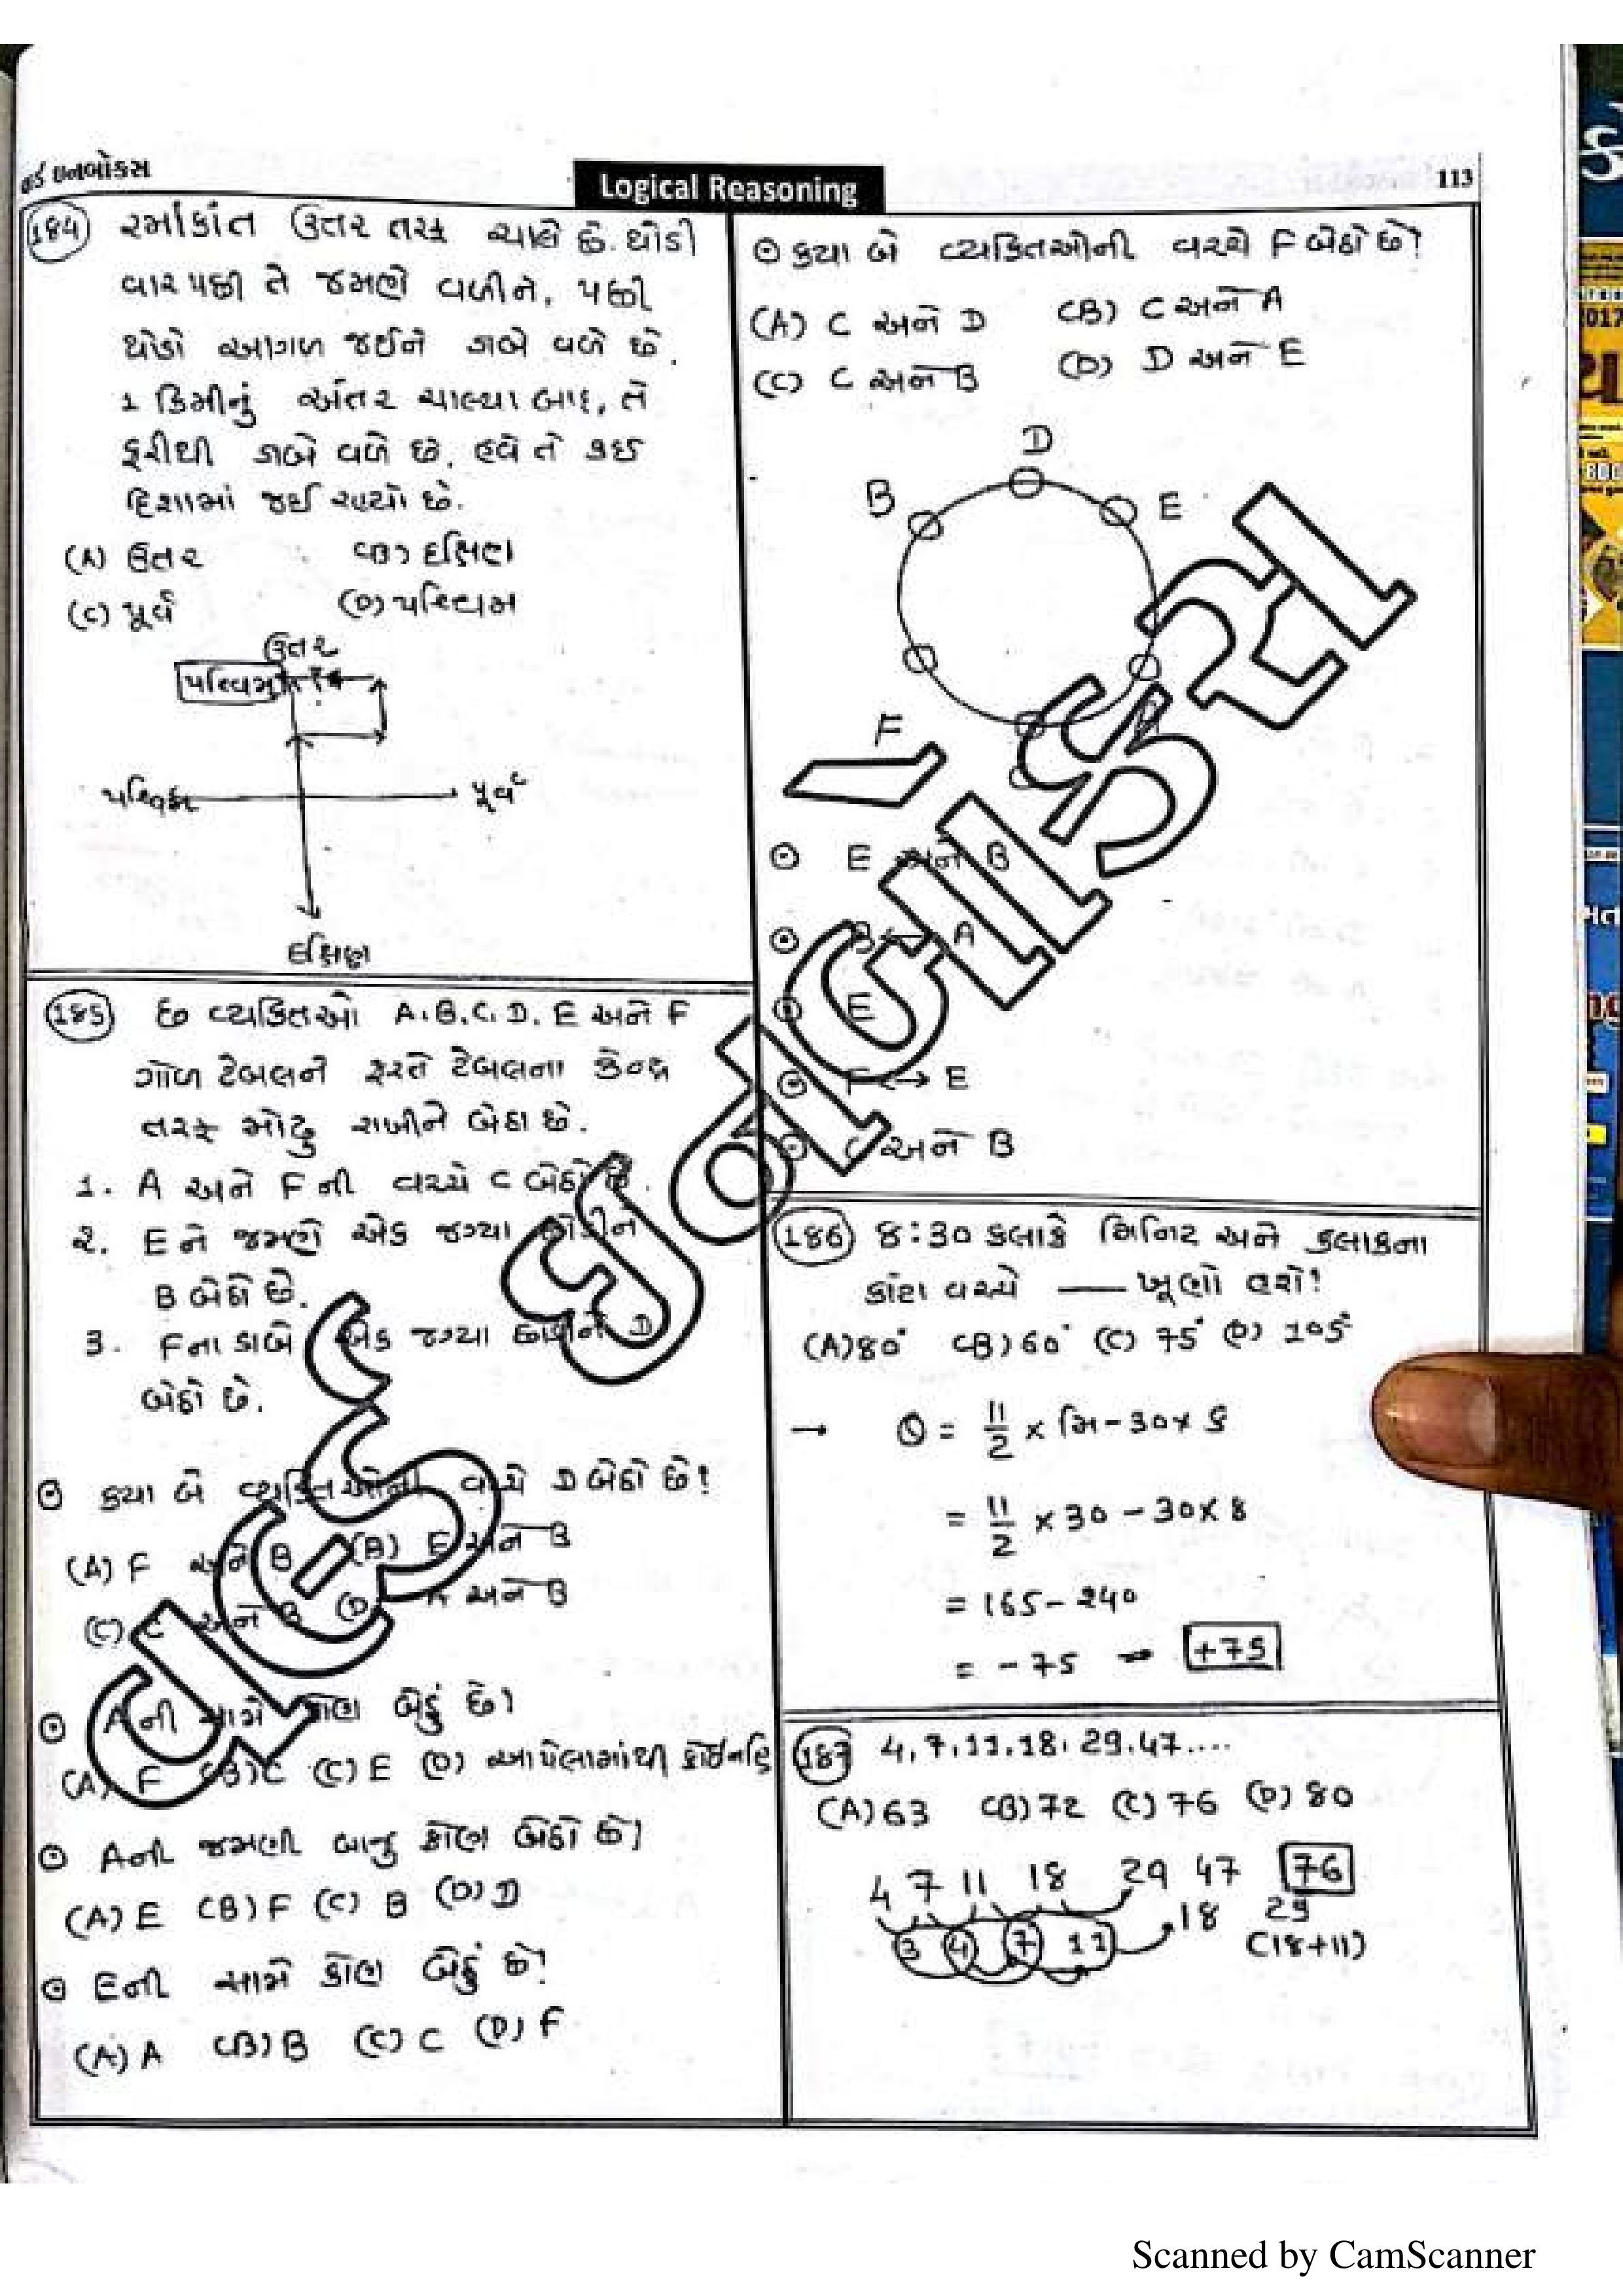 વર્લ્ડ ઇનબોક્સ
Logical Reasoning
113
184 રમાકાંત ઉતર તરફ ચાલે છે. થોડી
વાર પછી તે જમણે વળીને, પછી
થોડો આગળ જઈને ડાબે વળે છે.
1 કિમીનું અંતર ચાલ્યા બાદ, તે
ફરીથી ડાબે વળે છે. હવે તે કઈ
દિશામાં જઈ રહ્યો છે.
(A) ઉતર (B) દક્ષિણ
(C) પૂર્વ (D) પશ્ચિમ
ઉતર
પશ્ચિમ
પશ્ચિમ પૂર્વ
દક્ષિણ
185 છ વ્યકિતઓ A.B.C.D.E અને F
ગોળ ટેબલને ફરતે ટેબલના કેન્દ્ર
તરફ મોઢુ રાખીને બેઠા છે.
1. A અને F ની વચ્ચે C બેઠો છે.
2. E ને જમણે એક જગ્યા છોડીને
B બેઠો છે.
3. F ના ડાબે એક જગ્યા છોડીને D
બેઠો છે.
⊙ કયા બે વ્યકિતઓની વચ્ચે D બેઠો છે!
(A) F અને B (B) E અને B
(C) C અને B (D) A અને B
⊙ A ની સામે કોણ બેઠું છે?
(A) F (B) C (C) E (D) આપેલામાંથી કોઈ નહિ
⊙ A ની જમણી બાજુ કોણ બેઠો છે?
(A) E (B) F (C) B (D) D
⊙ E ની સામે કોણ બેઠું છે?
(A) A (B) B (C) C (D) F
⊙ કયા બે વ્યકિતઓની વચ્ચે F બેઠો છે?
(A) C અને D (B) C અને A
(C) C અને B (D) D અને E
D
B E
F
⊙ E અને B
⊙ B ↔ A
⊙ E
⊙ F ↔ E
⊙ C અને B
186 8:30 કલાકે મિનિટ અને કલાકના
કાંટા વચ્ચે —— ખૂણો હશે!
(A) 80° (B) 60° (C) 75° (D) 105°
→ θ = 11/2 × મિ - 30 × ક
= 11/2 × 30 - 30 × 8
= 165 - 240
= -75 → +75
187 4, 7, 11, 18, 29, 47....
(A) 63 (B) 72 (C) 76 (D) 80
4 7 11 18 29 47 76
3 4 7 11 18 29
(18+11)
વર્લ્ડ ઇનબોક્સ
Scanned by CamScanner